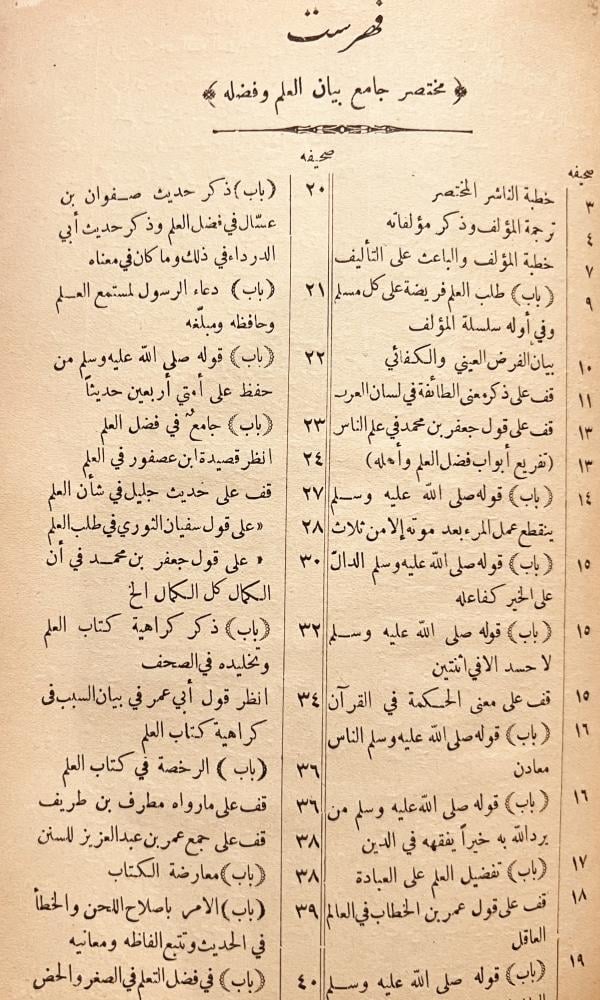 فهرست
﴿ مختصر جامع بيان العلم وفضله ﴾
صحيفه
٣ خطبة الناشر المختصر
٤ ترجمة المؤلف وذكر مؤلفاته
٧ خطبة المؤلف والباعث على التأليف
٩ (باب) طلب العلم فريضة على كل مسلم
وفي أوله سلسلة المؤلف
١٠ بيان الفرض العيني والكفائي
١١ قف على ذكر معنى الطائفة في لسان العرب
١٣ قف على قول جعفر بن محمد في علم الناس
١٣ (تفريع أبواب فضل العلم وأهله)
١٤ (باب) قوله صلى الله عليه وسلم
ينقطع عمل المرء بعد موته إلا من ثلاث
١٥ (باب) قوله صلى الله عليه وسلم الدالّ
على الخير كفاعله
١٥ (باب) قوله صلى الله عليه وسلم
لا حسد الا في اثنتين
١٥ قف على معنى الحكمة في القرآن
١٦ (باب) قوله صلى الله عليه وسلم الناس
معادن
١٦ (باب) قوله صلى الله عليه وسلم من
يرد الله به خيراً يفقهه في الدين
١٧ (باب) تفضيل العلم على العبادة
١٨ قف على قول عمر بن الخطاب في العالم
العاقل
١٩ (باب) قوله صلى الله عليه وسلم
صحيفه
٢٠ (باب) ذكر حديث صفوان بن
عسّال في فضل العلم وذكر حديث أبي
الدرداء في ذلك وما كان في معناه
٢١ (باب) دعاء الرسول لمستمع العلم
وحافظه ومبلّغه
٢٢ (باب) قوله صلى الله عليه وسلم من
حفظ على أمتي أربعين حديثاً
٢٣ (باب) جامعٌ في فضل العلم
٢٤ انظر قصيدة ابن عصفور في العلم
٢٧ قف على حديث جليل في شأن العلم
٢٨ « على قول سفيان الثوري في طلب العلم
٣٠ « على قول جعفر بن محمد في أن
الكمال كل الكمال الخ
٣٢ (باب) ذكر كراهية كتاب العلم
وتخليده في الصحف
٣٤ انظر قول أبي عمر في بيان السبب فى
كراهية كتاب العلم
٣٦ (باب) الرخصة في كتاب العلم
٣٦ قف على مارواه مطرف بن طريف
٣٨ قف على جمع عمر بن عبد العزيز للسنن
٣٨ (باب) معارضة الكتاب
٣٩ (باب) الامر باصلاح اللحن والخطأ
في الحديث وتتبع الفاظه ومعانيه
٤٠ (باب) في فضل التعلم في الصغر والحض